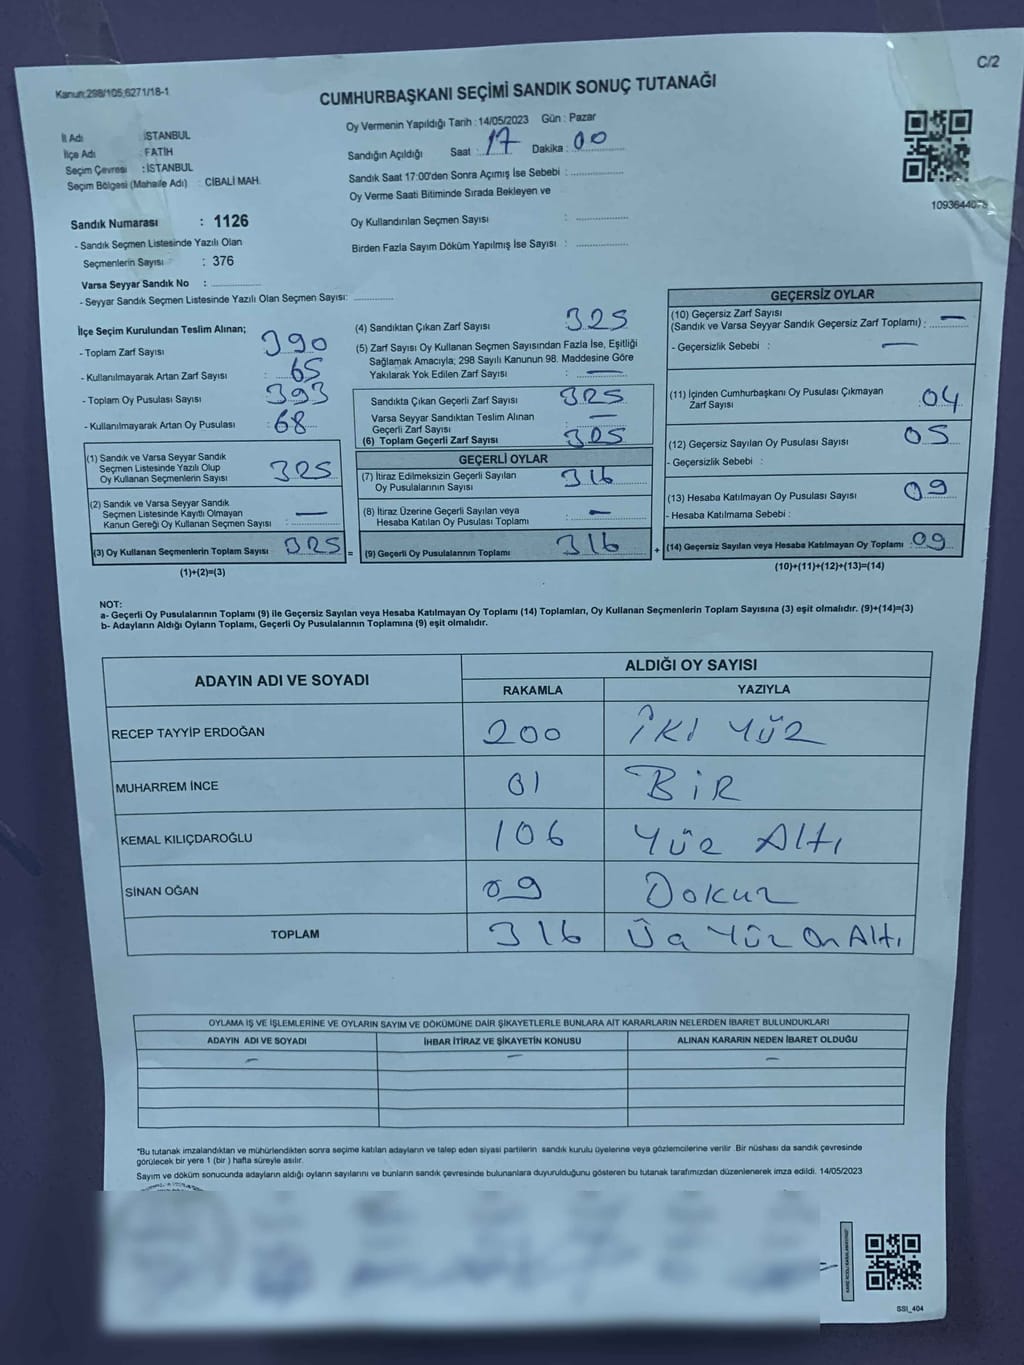 Kanun;298/105;6271/18-1
C/2
CUMHURBAŞKANI SEÇİMİ SANDIK SONUÇ TUTANAĞI
İl Adı : İSTANBUL
İlçe Adı : FATİH
Seçim Çevresi : İSTANBUL
Seçim Bölgesi (Mahalle Adı) : CİBALİ MAH.
Sandık Numarası : 1126
- Sandık Seçmen Listesinde Yazılı Olan
Seçmenlerin Sayısı : 376
Varsa Seyyar Sandık No :
- Seyyar Sandık Seçmen Listesinde Yazılı Olan Seçmen Sayısı:
Oy Vermenin Yapıldığı Tarih : 14/05/2023 Gün : Pazar
Sandığın Açıldığı Saat : 17 Dakika : 00
Sandık Saat 17:00'den Sonra Açımış İse Sebebi :
Oy Verme Saati Bitiminde Sırada Bekleyen ve
Oy Kullandırılan Seçmen Sayısı :
Birden Fazla Sayım Döküm Yapılmış İse Sayısı :
İlçe Seçim Kurulundan Teslim Alınan;
- Toplam Zarf Sayısı : 390
- Kullanılmayarak Artan Zarf Sayısı : 65
- Toplam Oy Pusulası Sayısı : 393
- Kullanılmayarak Artan Oy Pusulası : 68
(1) Sandık ve Varsa Seyyar Sandık
Seçmen Listesinde Yazılı Olup
Oy Kullanan Seçmenlerin Sayısı : 325
(2) Sandık ve Varsa Seyyar Sandık
Seçmen Listesinde Kayıtlı Olmayan
Kanun Gereği Oy Kullanan Seçmen Sayısı : —
(3) Oy Kullanan Seçmenlerin Toplam Sayısı : 325 =
(1)+(2)=(3)
(4) Sandıktan Çıkan Zarf Sayısı : 325
(5) Zarf Sayısı Oy Kullanan Seçmen Sayısından Fazla İse, Eşitliği
Sağlamak Amacıyla; 298 Sayılı Kanunun 98. Maddesine Göre
Yakılarak Yok Edilen Zarf Sayısı : —
Sandıkta Çıkan Geçerli Zarf Sayısı : 325
Varsa Seyyar Sandıktan Teslim Alınan
Geçerli Zarf Sayısı : —
(6) Toplam Geçerli Zarf Sayısı : 325
GEÇERLİ OYLAR
(7) İtiraz Edilmeksizin Geçerli Sayılan
Oy Pusulalarının Sayısı : 316
(8) İtiraz Üzerine Geçerli Sayılan veya
Hesaba Katılan Oy Pusulası Toplamı : —
(9) Geçerli Oy Pusulalarının Toplamı : 316 +
GEÇERSİZ OYLAR
(10) Geçersiz Zarf Sayısı
(Sandık ve Varsa Seyyar Sandık Geçersiz Zarf Toplamı) : —
- Geçersizlik Sebebi : —
(11) İçinden Cumhurbaşkanı Oy Pusulası Çıkmayan
Zarf Sayısı : 04
(12) Geçersiz Sayılan Oy Pusulası Sayısı : 05
- Geçersizlik Sebebi :
(13) Hesaba Katılmayan Oy Pusulası Sayısı : 09
- Hesaba Katılmama Sebebi :
(14) Geçersiz Sayılan veya Hesaba Katılmayan Oy Toplamı : 09
(10)+(11)+(12)+(13)=(14)
NOT:
a- Geçerli Oy Pusulalarının Toplamı (9) ile Geçersiz Sayılan veya Hesaba Katılmayan Oy Toplamı (14) Toplamları, Oy Kullanan Seçmenlerin Toplam Sayısına (3) eşit olmalıdır. (9)+(14)=(3)
b- Adayların Aldığı Oyların Toplamı, Geçerli Oy Pusulalarının Toplamına (9) eşit olmalıdır.
ADAYIN ADI VE SOYADI ALDIĞI OY SAYISI
RAKAMLA YAZIYLA
RECEP TAYYİP ERDOĞAN 200 İKİ YÜZ
MUHARREM İNCE 01 BİR
KEMAL KILIÇDAROĞLU 106 YÜZ Altı
SİNAN OĞAN 09 Dokuz
TOPLAM 316 Üç Yüz On Altı
OYLAMA İŞ VE İŞLEMLERİNE VE OYLARIN SAYIM VE DÖKÜMÜNE DAİR ŞİKAYETLERLE BUNLARA AİT KARARLARIN NELERDEN İBARET BULUNDUKLARI
ADAYIN ADI VE SOYADI İHBAR İTİRAZ VE ŞİKAYETİN KONUSU ALINAN KARARIN NEDEN İBARET OLDUĞU
— — —
*Bu tutanak imzalandıktan ve mühürlendikten sonra seçime katılan adayların ve talep eden siyasi partilerin sandık kurulu üyelerine veya gözlemcilerine verilir .Bir nüshası da sandık çevresinde
görülecek bir yere 1 (bir ) hafta süreyle asılır.
Sayım ve döküm sonucunda adayların aldığı oyların sayılarını ve bunların sandık çevresinde bulunanlara duyurulduğunu gösteren bu tutanak tarafımızdan düzenlenerek imza edildi. 14/05/2023
SSI_404